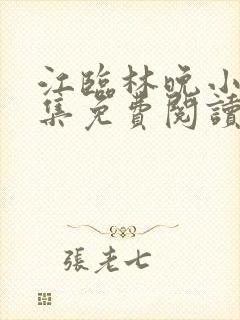 江臨林晚小
集免費閱讀
張老七